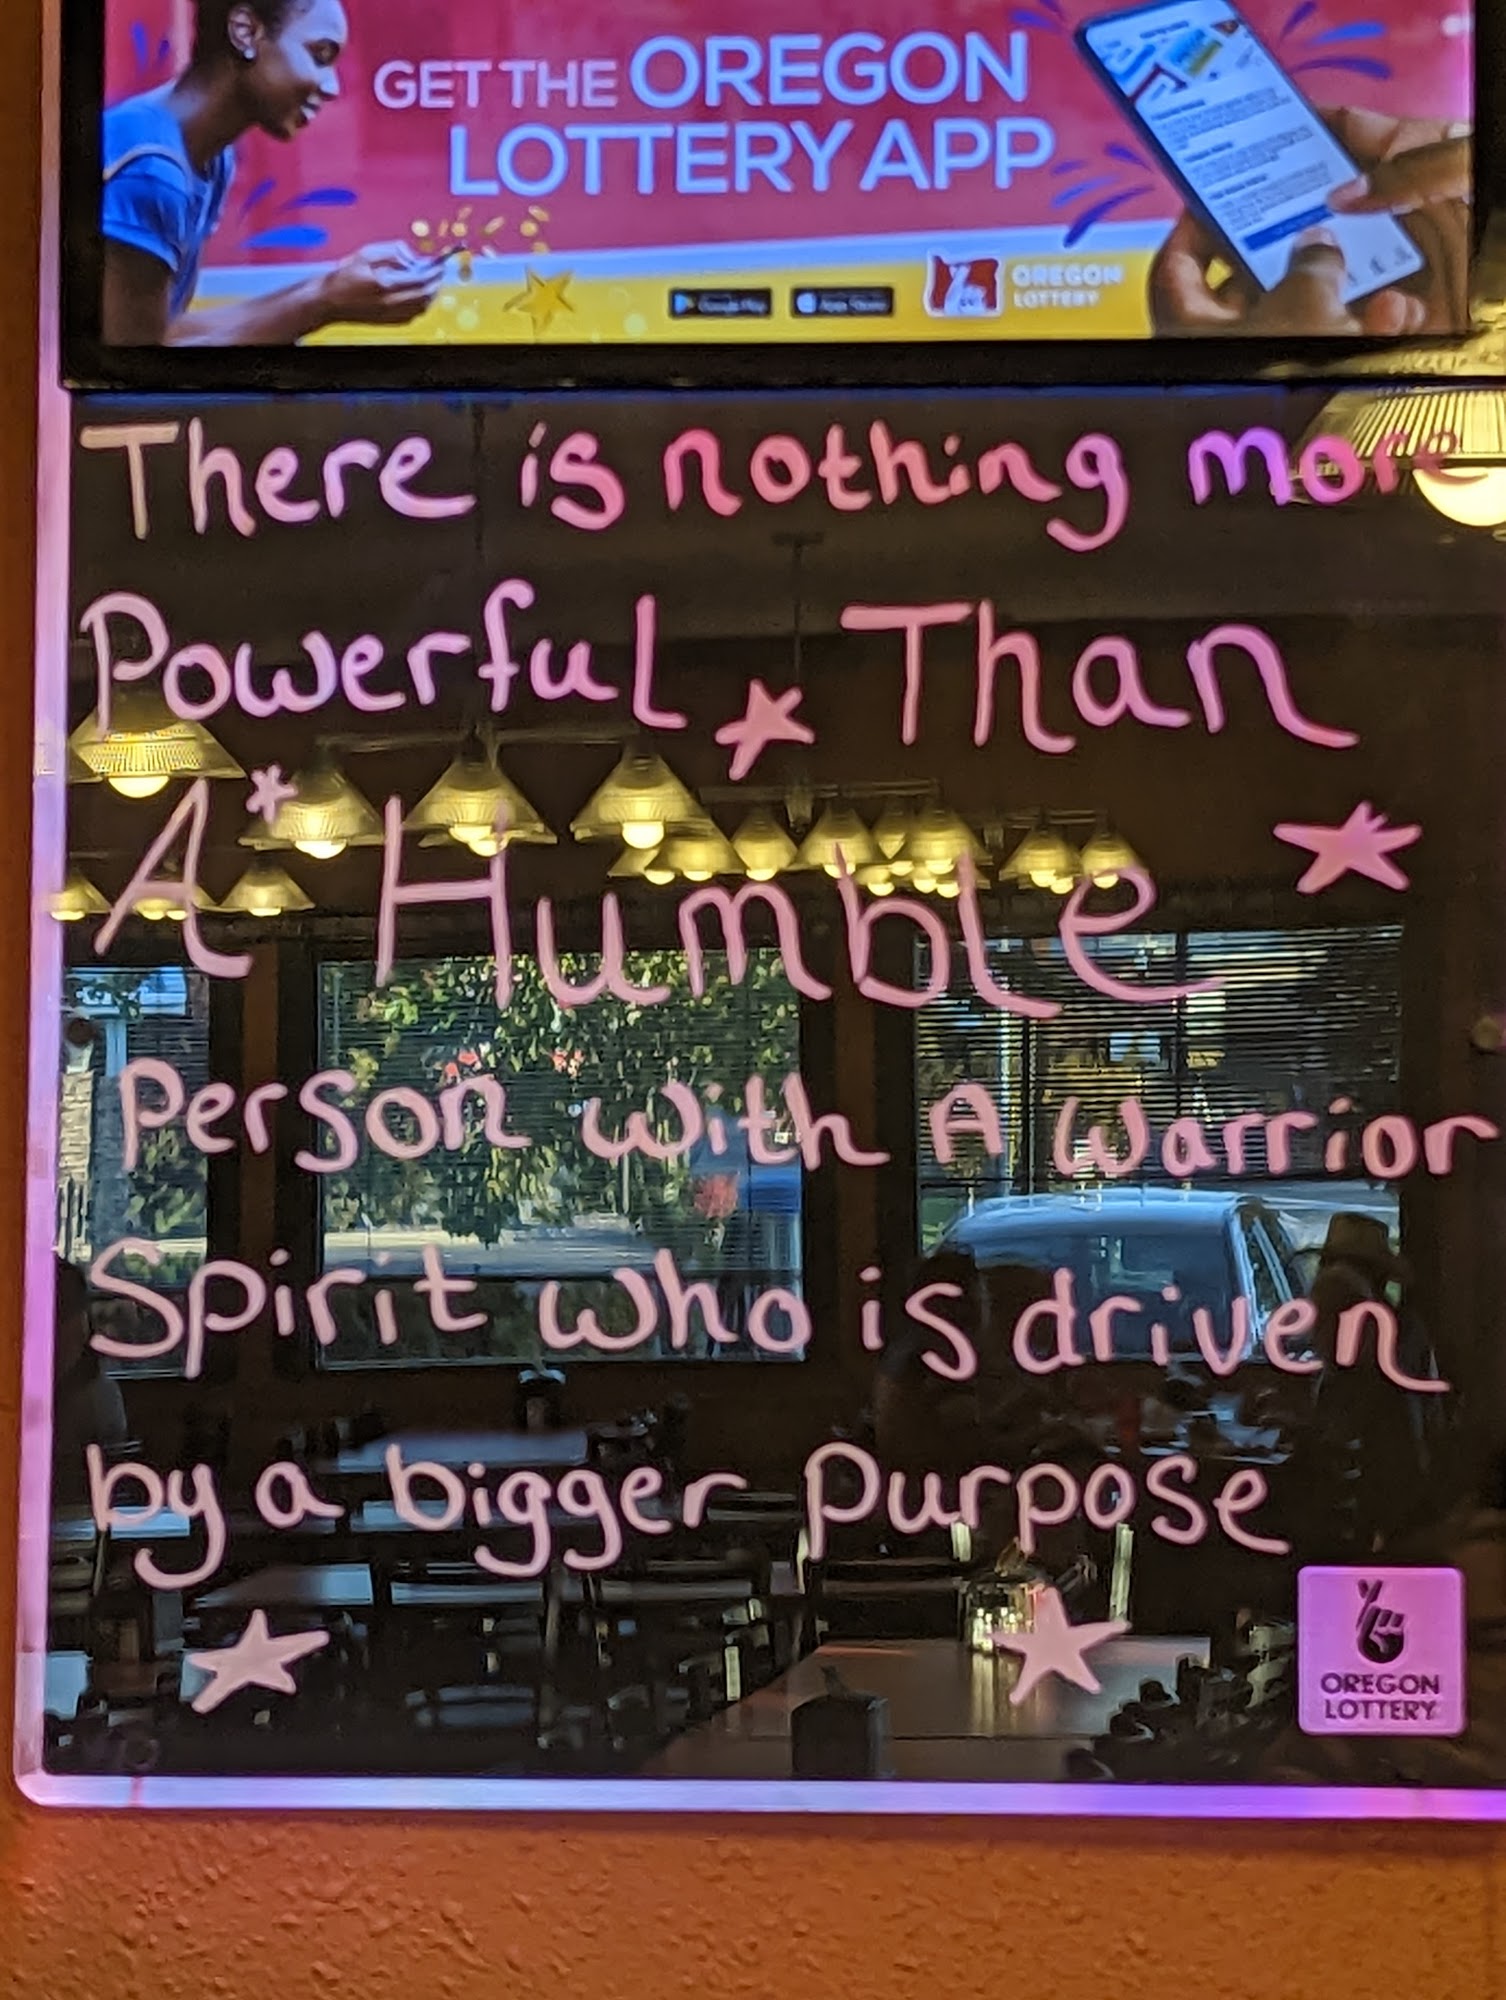 GET THE OREGON
LOTTERY APP
Google Play
App Store
OREGON
LOTTERY
There is nothing more
Powerful Than
A Humble
Person with A Warrior
Spirit who is driven
by a bigger purpose
OREGON
LOTTERY